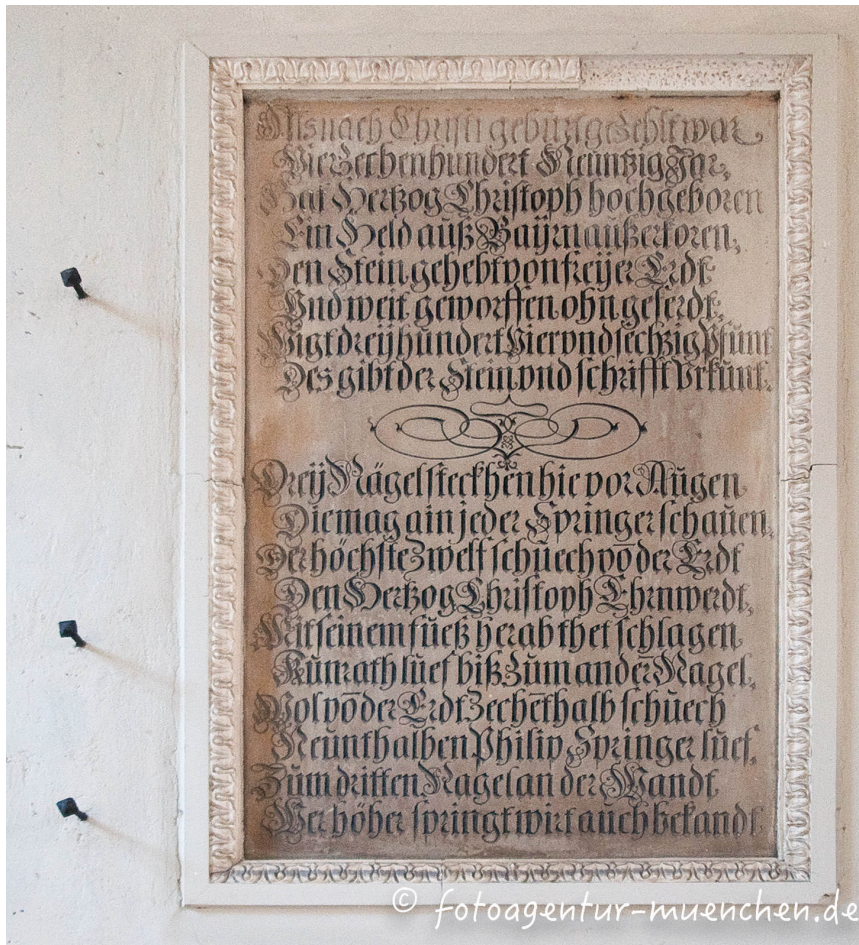 Als nach Christi geburt gezehlt war
Vierzechenhundert Neuntzig Jar,
Hat Hertzog Christoph hochgeboren
Ein Held auß Bayrn außerkoren,
Den Stein gehebt von freyer Erdt
Und weit geworffen ohn geferdt,
Wigt dreyhundert Vier und sechzig Pfunt
Des gibt der Stein und schrifft Urkunt.
Drey Nägel steckhen hie vor Augen
Die mag ain jeder Springer schauen,
Der höchste Zwelf schuech vō der Erdt
Den Hertzog Christoph Ehrnwerdt,
Mit seinem fueß herab thet schlagen
Kunrath luef biß Zum ander Nagel,
Wol vō der Erdt Zechēthalb schuech
Neunthalben Philip Springer luef,
Zum dritten Nagel an der Wandt
Wer höher springt wirt auch bekandt.
© fotoagentur-muenchen.de